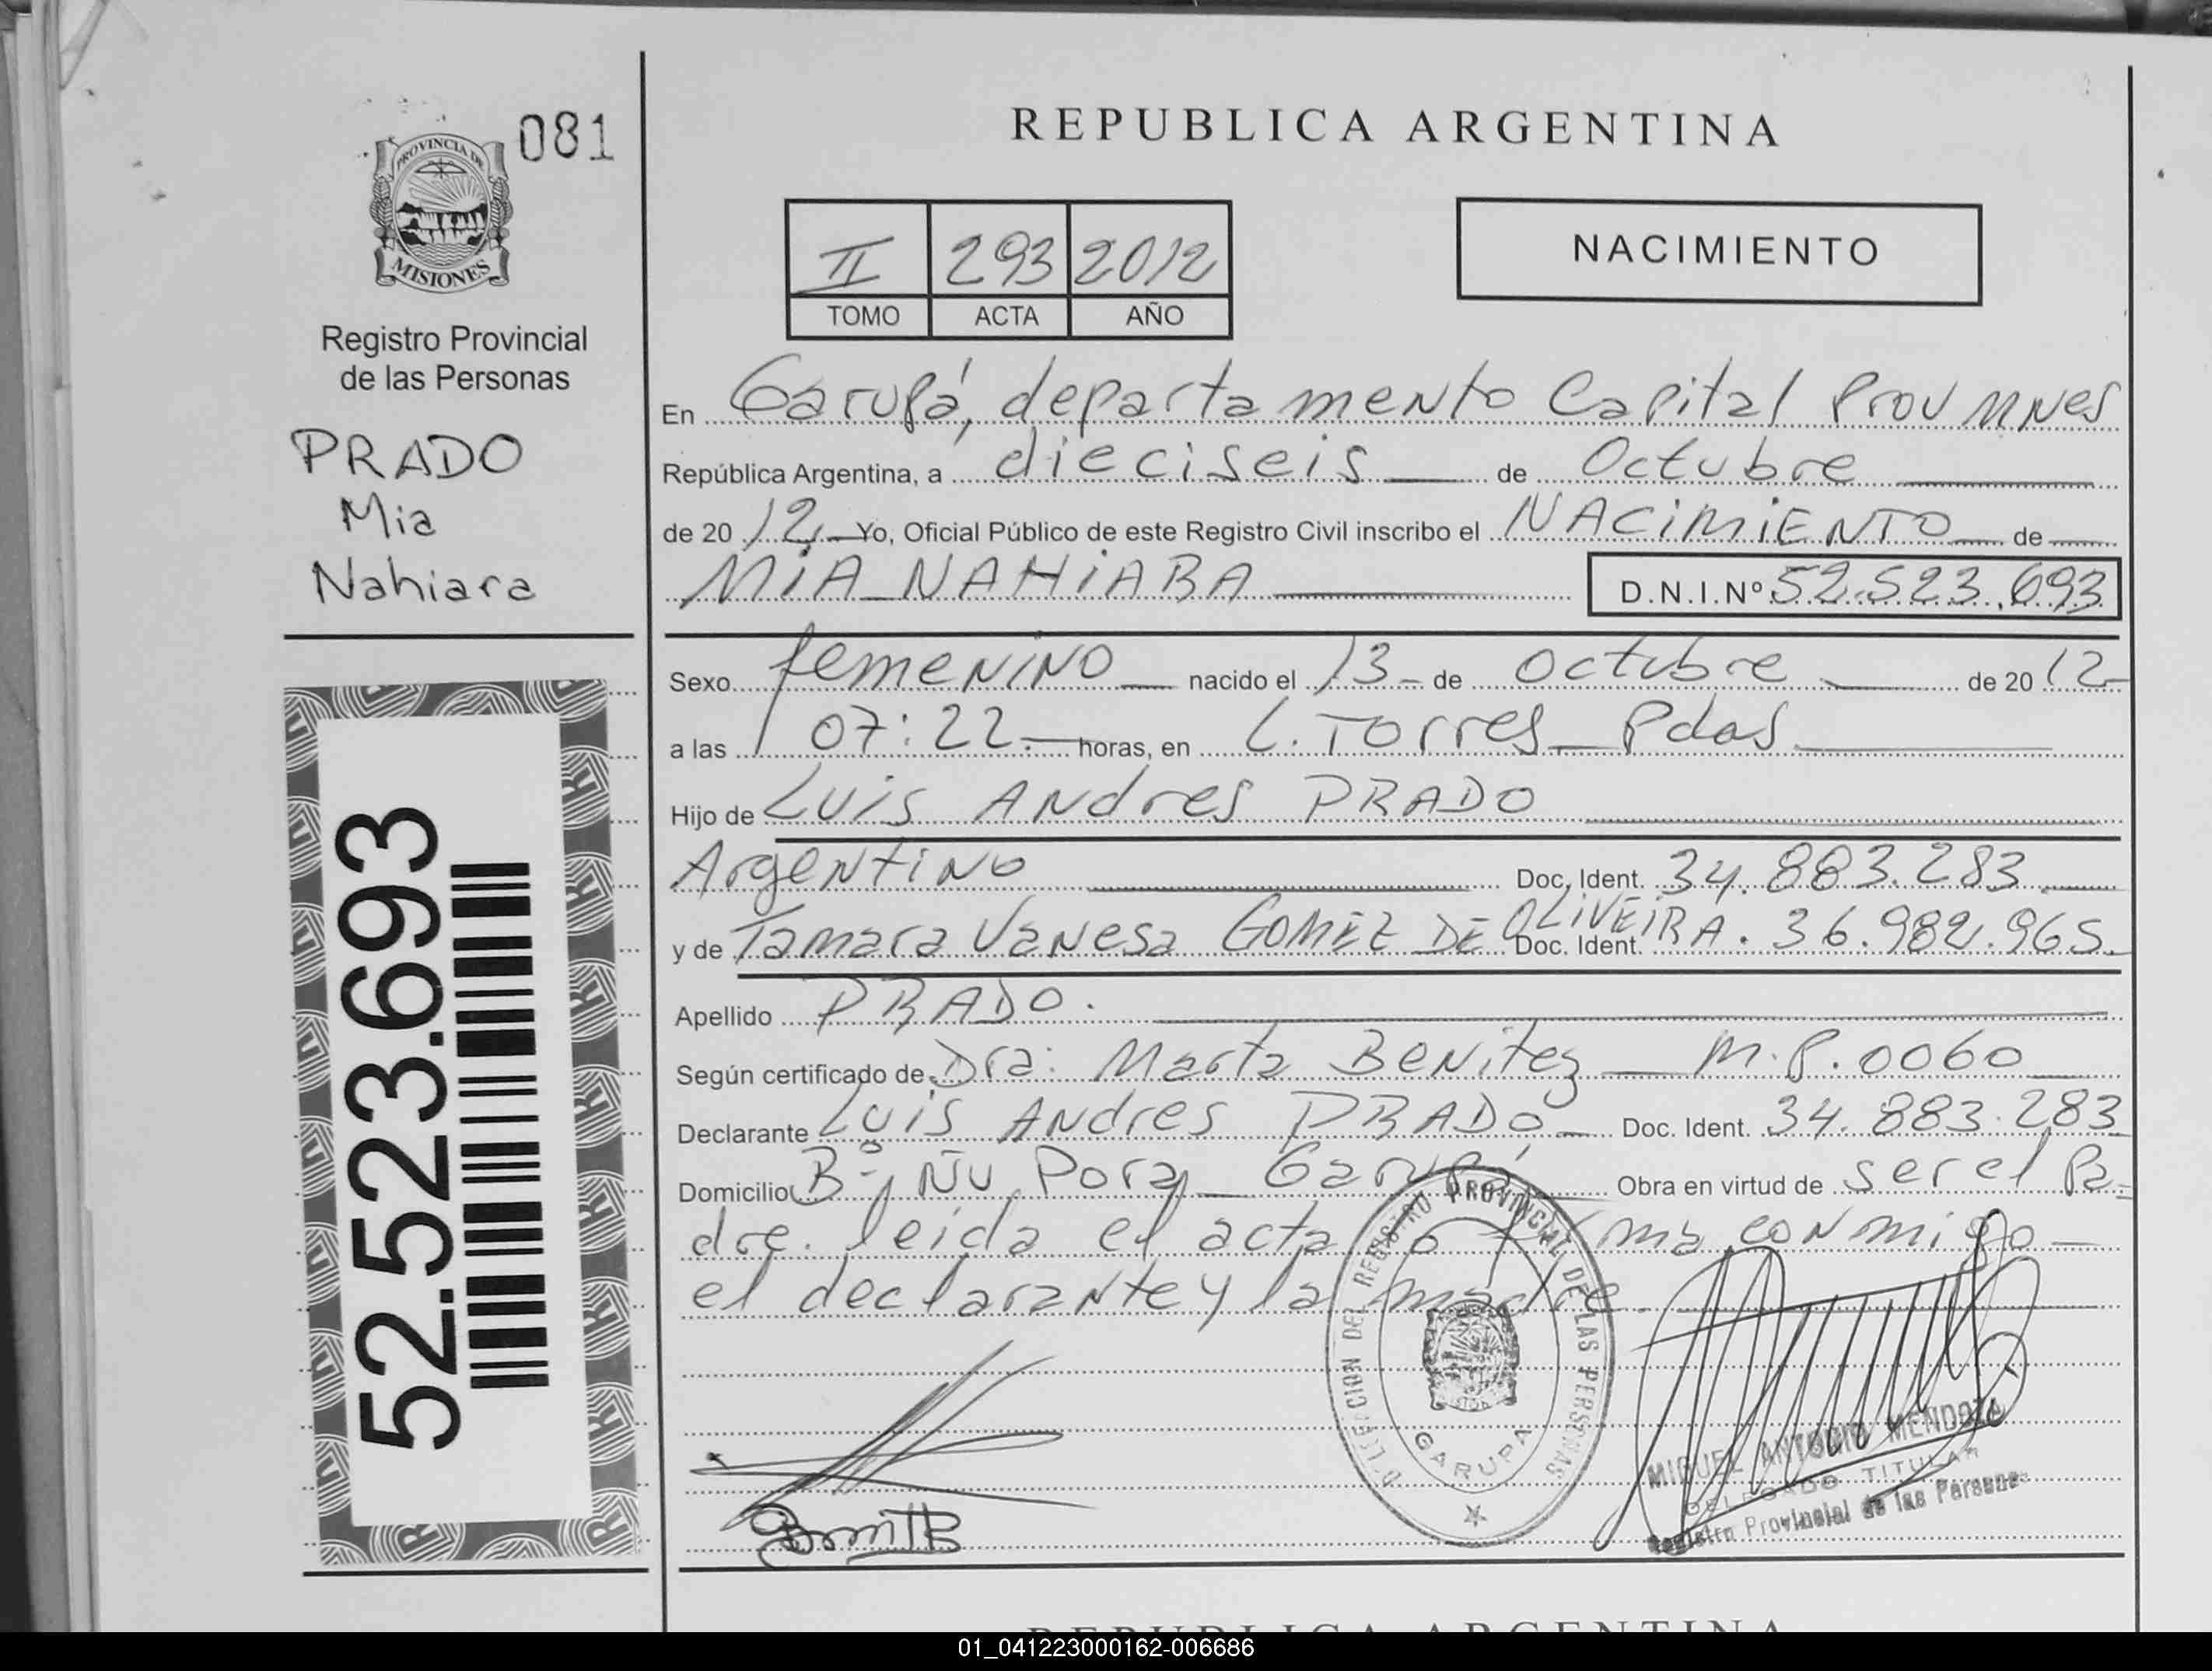 081
PROVINCIA DE
MISIONES
Registro Provincial
de las Personas
PRADO
Mia
Nahiara
52.523.693
REPUBLICA ARGENTINA
II 293 2012
TOMO ACTA AÑO
NACIMIENTO
En Garupá, departamento Capital Prov Mnes
República Argentina, a dieciseis de Octubre
de 20 12 Yo, Oficial Público de este Registro Civil inscribo el NACIMIENTO de
MIA NAHIARA D.N.I.Nº 52.523.693
Sexo femenino nacido el 13 de octubre de 20 12
a las 07:22 horas, en L. Torres Pdas
Hijo de Luis Andres PRADO
Argentino Doc. Ident. 34.883.283
y de Tamara Vanesa GOMEZ DE OLIVEIRA. Doc. Ident. 36.982.965
Apellido PRADO.
Según certificado de Dra: Marta Benitez M.P. 0060
Declarante Luis Andres PRADO Doc. Ident. 34.883.283
Domicilio Bº Ñu Pora Garupá Obra en virtud de ser el Pa-
dre. leida el acta firma conmigo
el declarante y la madre.
DELEGACION DEL REGISTRO PROVINCIAL DE LAS PERSONAS
GARUPA
MIGUEL ANTONIO MENDOZA
DELEGADO TITULAR
Registro Provincial de las Personas
REPUBLICA ARGENTINA
01_041223000162-006686